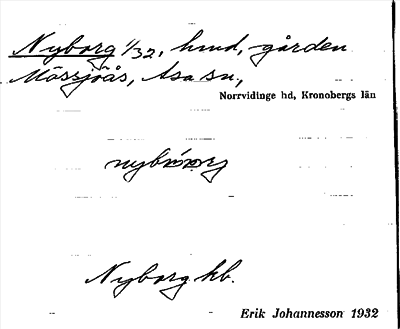 Nyborg 1/32, hmd, gården
Mössjöås, Asa sn,
Norrvidinge hd, Kronobergs län
Nyborg hb.
Erik Johannesson 1932